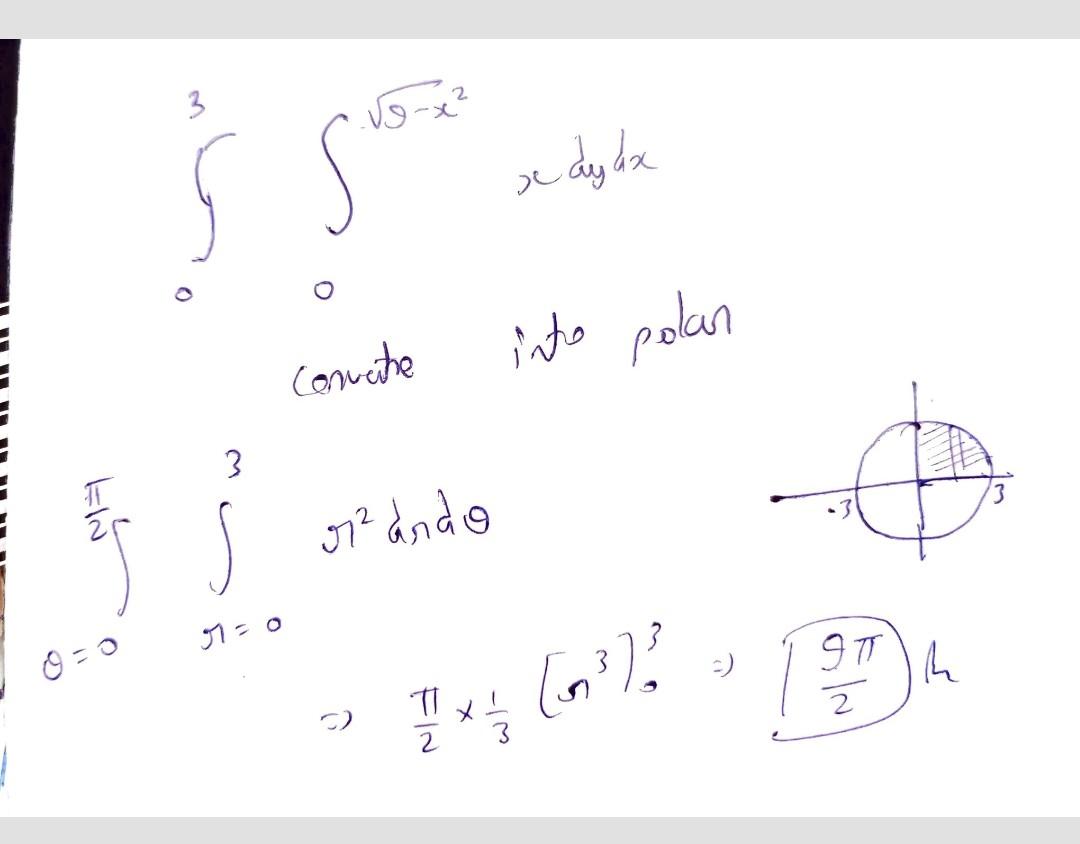 ∫₀³ ∫₀^√(9-x²) x dy dx
into polar
∫_{θ=0}^{π/2} ∫_{r=0}^{3} r² dr dθ
-3 3
=) π/2 × 1/3 [r³]₀³ =) 9π/2